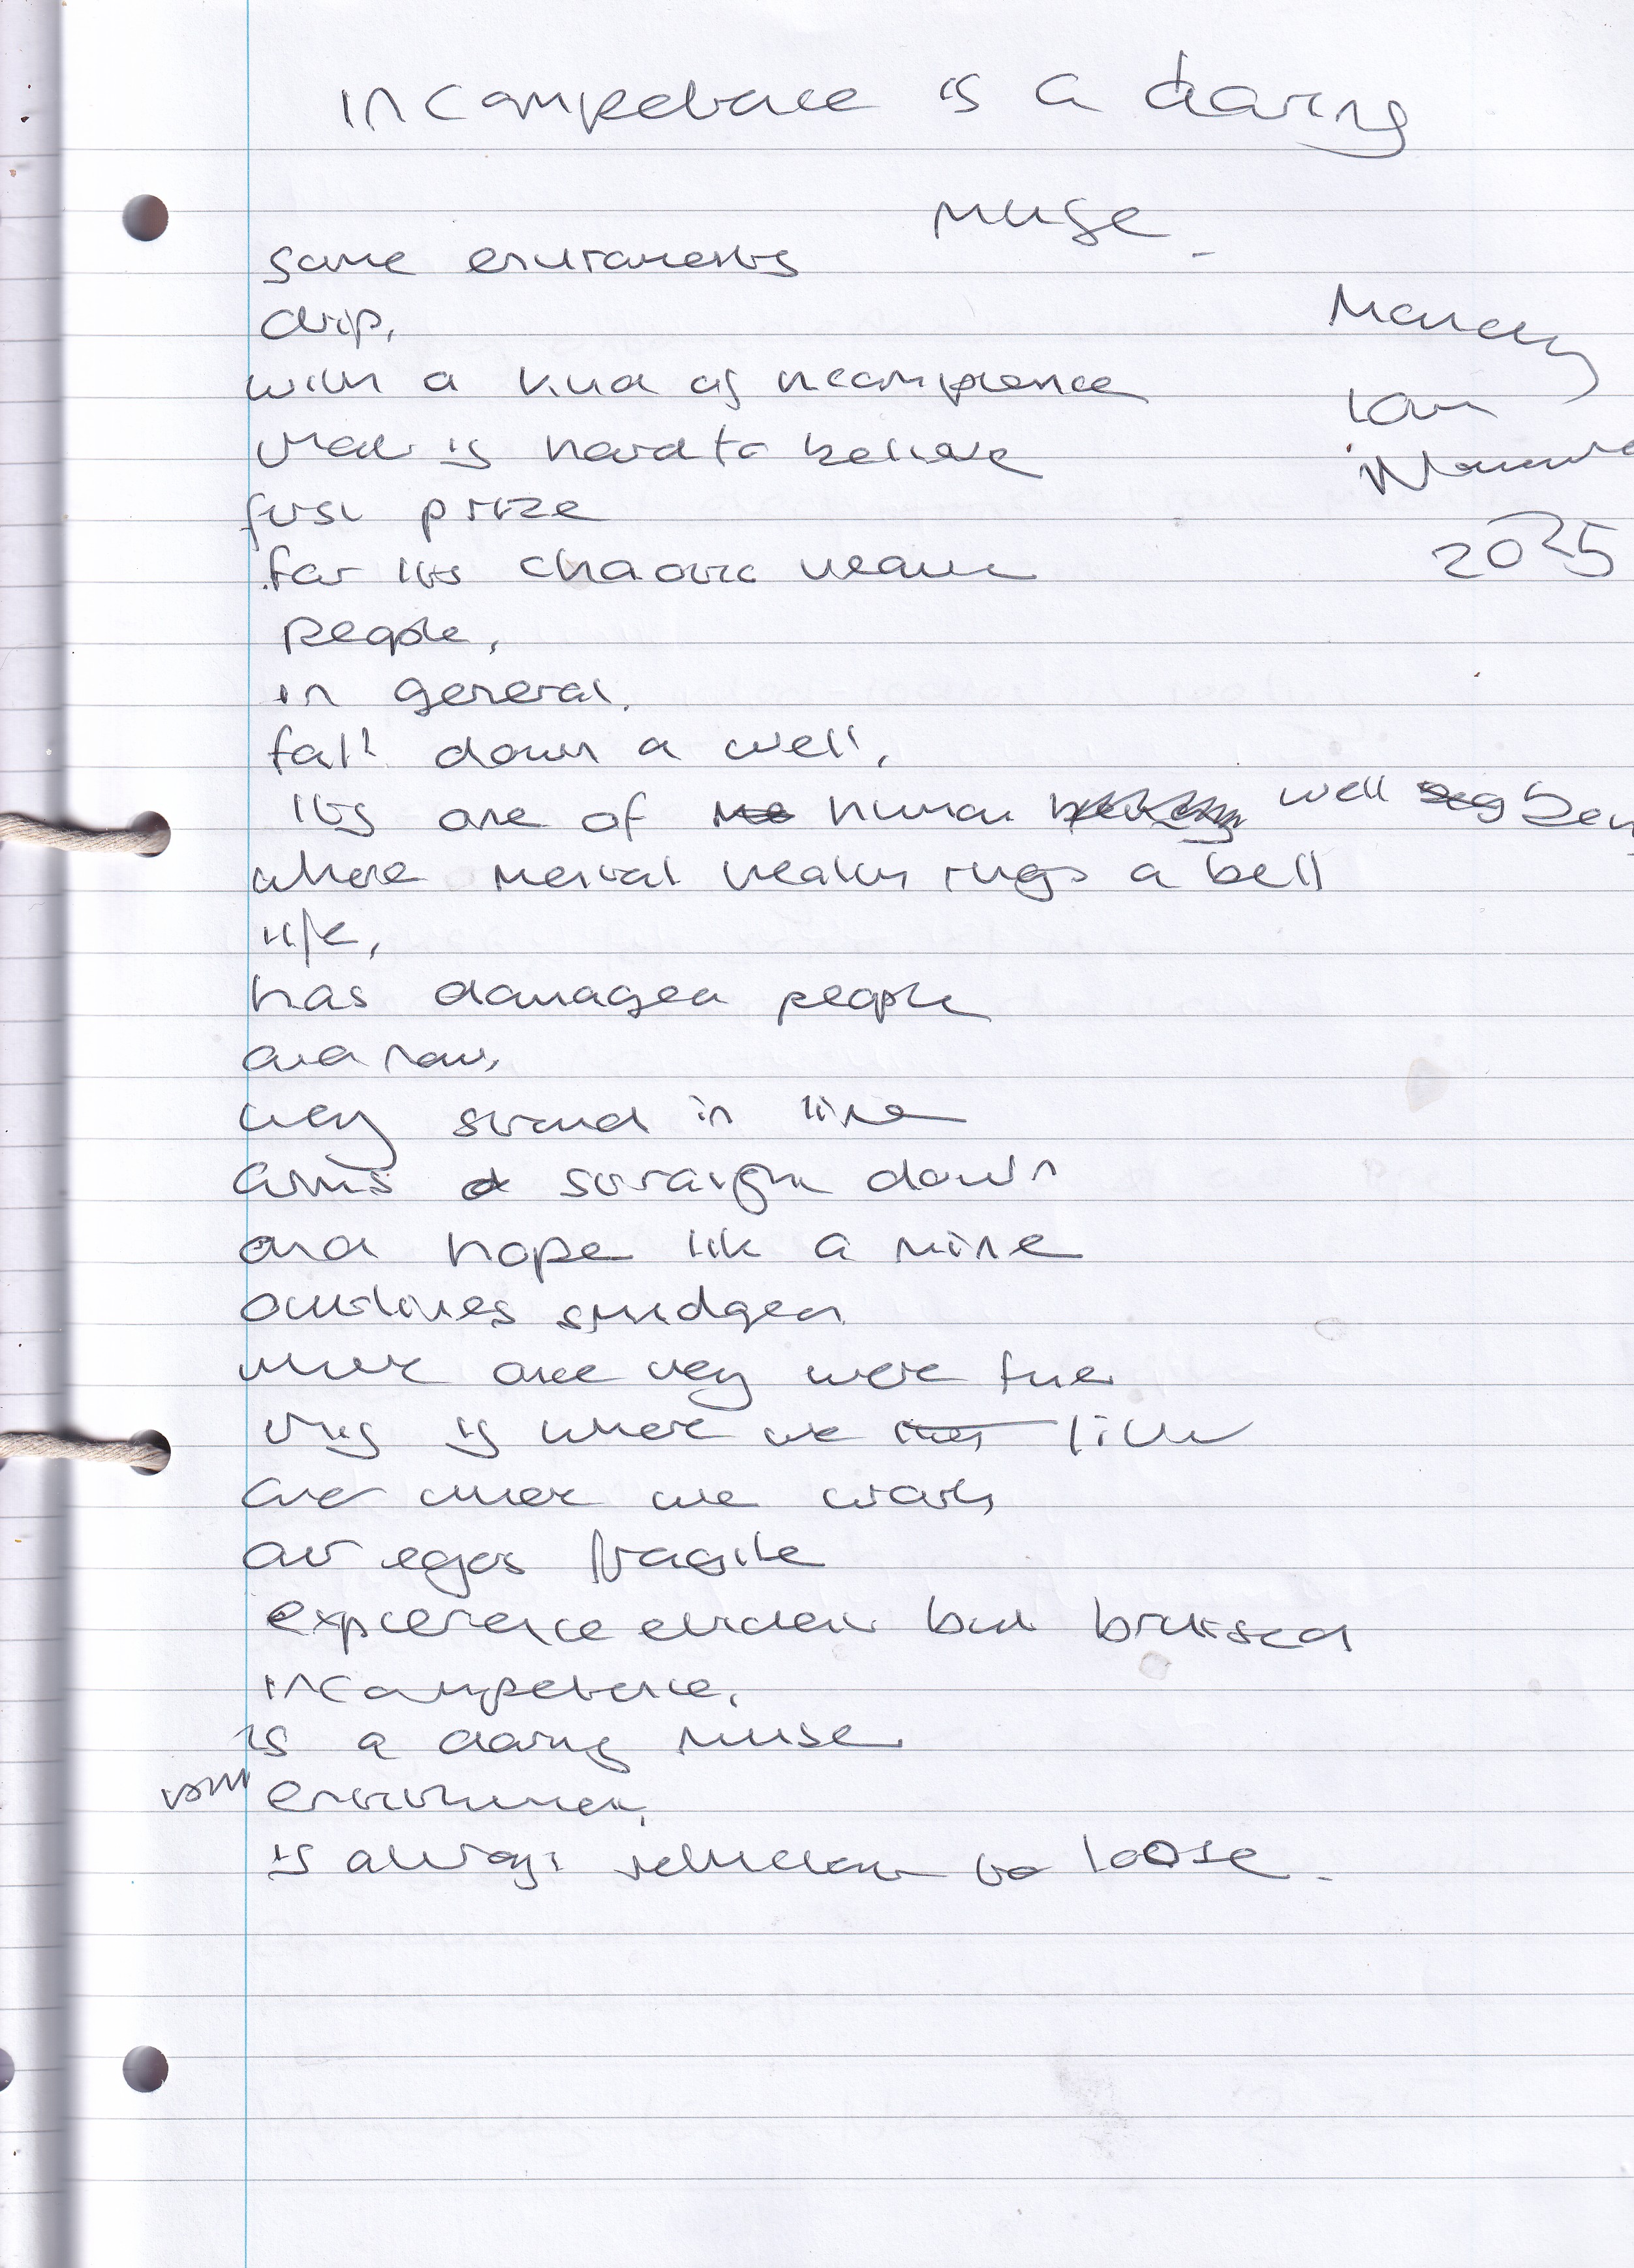 incompetence is a daring
muse.
some enviroments
drip,
with a kind of incompetence
that is hard to believe
first prize
for its chaotic
people,
in general,
fall down a well,
its one of human well being
where mental health rings a bell
life,
has damaged people
and now,
they stand in line
arms straight down
and hope like a mine
outlines smudged
where once they were fine
this is where we live
and where we work
our egos fragile
experience evident but bruised
incompetence,
is a daring muse
enviroment,
is always reluctant to loose.
Monday
10th
November
2025